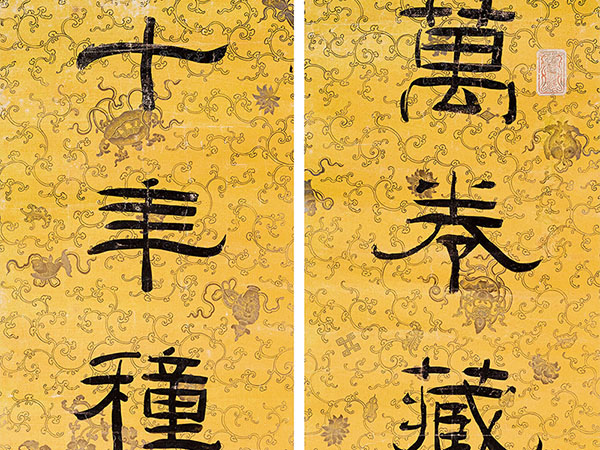 萬卷藏
十年種